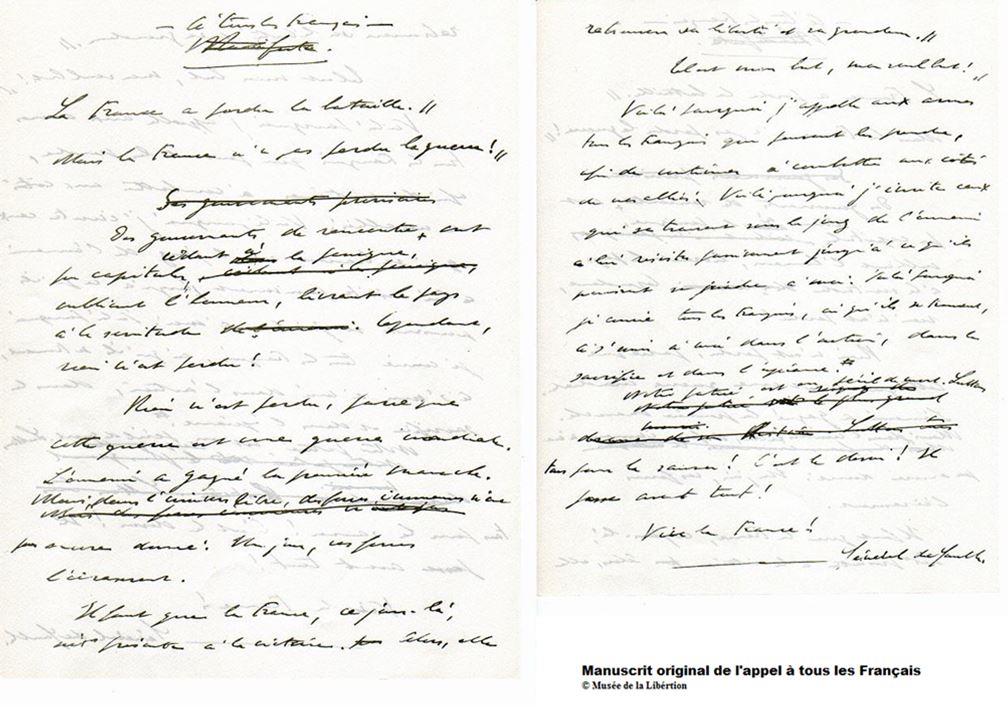 — à tous les Français —
Manifeste.
La France a perdu la bataille. //
Mais la France n'a pas perdu la guerre ! //
Des gouvernants
Des gouvernants de rencontre ont
cédant à la panique,
pu capituler, cédant à la panique,
oubliant l'honneur, livrant le pays
à la servitude. Cependant,
rien n'est perdu !
Rien n'est perdu, parce que
cette guerre est une guerre mondiale.
L'ennemi a gagné la première manche.
Mais, dans l'univers libre, des forces immenses n'ont
Mais des forces immenses
pas encore donné. Un jour, ces forces
l'écraseront.
Il faut que la France, ce jour-là,
soit présente à la victoire. Alors, elle
retrouvera sa liberté et sa grandeur. //
Tel est mon but, mon seul but ! //
Voilà pourquoi j'appelle aux armes
tous les Français qui peuvent les prendre,
à combattre aux côtés
de nos alliés. Voilà pourquoi j'invite ceux
qui se trouvent sous le joug de l'ennemi
à lui résister jusqu'à ce qu'ils
puissent se joindre à moi. Voilà pourquoi
je convie tous les Français, où qu'ils se trouvent,
à s'unir à moi dans l'action, dans le
sacrifice et dans l'espérance.
Notre patrie est en péril de mort. Luttons
Notre patrie est le plus grand
Luttons tous
tous pour la sauver ! C'est le devoir ! Il
passe avant tout !
Vive la France !
Général de Gaulle.
Manuscrit original de l'appel à tous les Français
© Musée de la Libértion